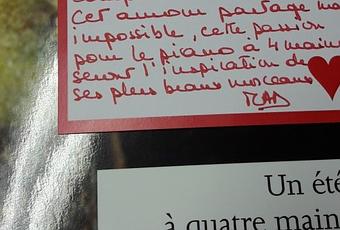 Cet amour partagé ma
impossible, cette passion
pour le piano à 4 main
seront l'inspiration de
ses plus beaux morceaux
Un été
à quatre main